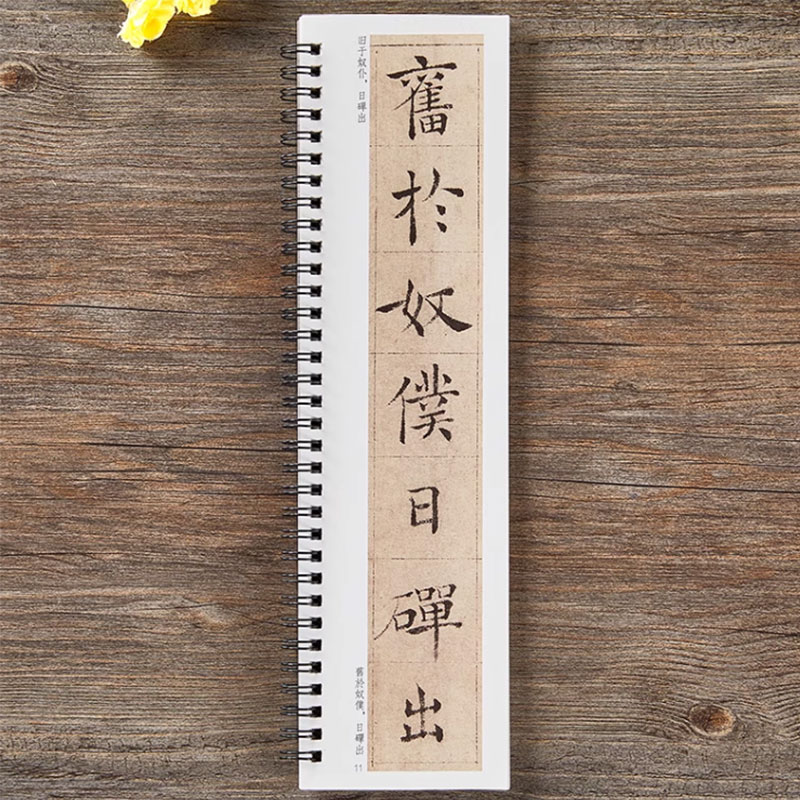 舊於奴僕日磾出
旧于奴仆，日磾出
舊於奴僕，日磾出
11